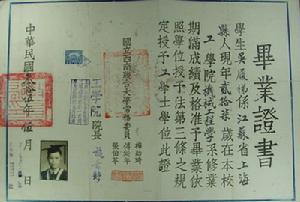 畢業證書
學生吳慶恆係江蘇省上海
縣人現年貳拾歲在本校
工學院機械工程學系修業
期滿成績及格准予畢業依
照學位授予法第三條之規
定授予工學士學位此證
國立西南聯合大學常務委員
梅貽琦
傅斯年
張伯苓
工學院院長
中華民國
年
月
日